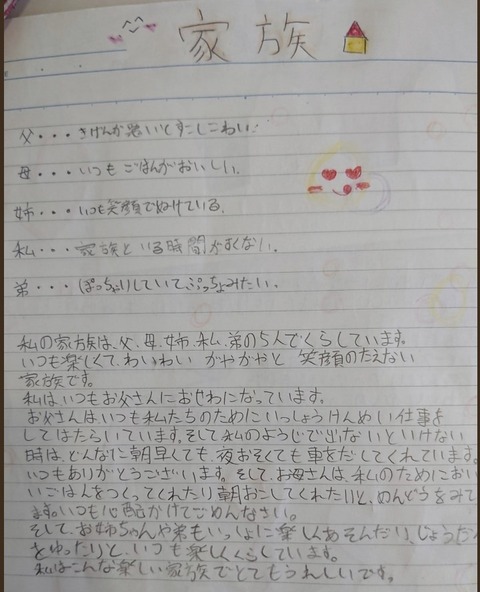 家族
父・・・きげんが悪いとすこしこわい。
母・・・いつもごはんがおいしい。
姉・・・いつも笑顔でぬけている。
私・・・家族といる時間がすくない。
弟・・・ぽっちゃりしていてぷっちょみたい。
私の家族は、父、母、姉、私、弟の5人でくらしています。
いつも楽しくて、わいわい がやがやと 笑顔のたえない
家族です。
私はいつもお父さんにおせわになっています。
お父さんは、いつも私たちのためにいっしょうけんめい仕事を
してはたらいています。そして私のようじで出ないといけない
時は、どんなに朝早くても、夜おそくても車をだしてくれています。
いつもありがとうございます。そして、お母さんは、私のためにおい
いごはんをつくってくれたり朝おこしてくれたりと、めんどうをみて
ます。いつも心配かけてごめんなさい。
そして、お姉ちゃんや弟もいっしょに楽しくあそんだり、じょうだん
をゆったりと、いつも楽しくくらしています。
私はこんな楽しい家族でとてもうれしいです。